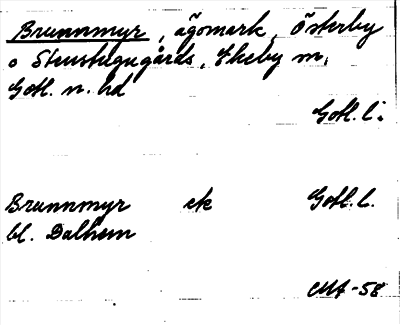 Brunnmyr, ägomark, Österby
o Stenstugugårds, Ekeby sn,
Gotl. n. hd
Gotl. l:
Brunnmyr ek Gotl. l.
bl. Dalhem
-58